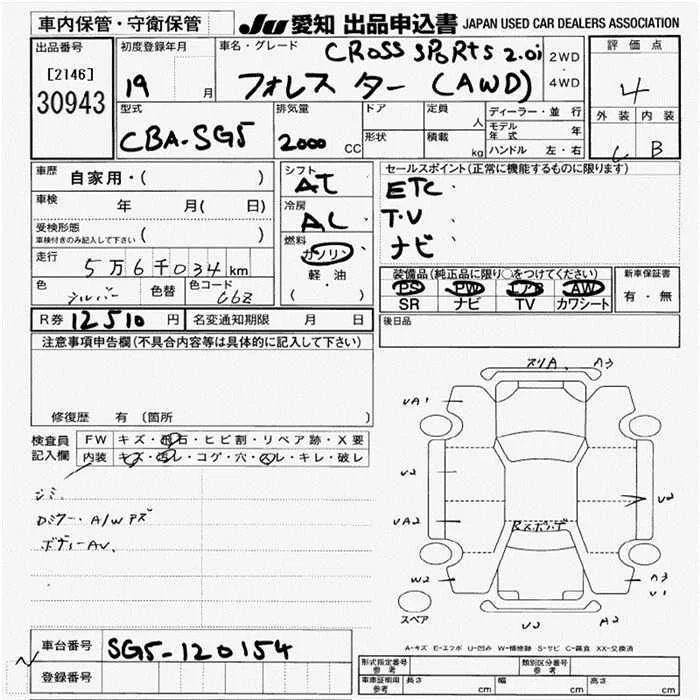 車内保管・守衛保管
JU 愛知 出品申込書 JAPAN USED CAR DEALERS ASSOCIATION
出品番号
[2146]
30943
初度登録年月
19 月
車名・グレード
CROSS SPORTS 2.0i
フォレスター (AWD)
2WD
・
4WD
評価点
4
外装 内装
C B
型式
CBA-SG5
排気量
2000 CC
ドア
形状
定員
人
積載
kg
ディーラー・並行
モデル年式 年
ハンドル 左・右
車歴
自家用・( )
車検
年 月( 日)
受検形態
車検付きのみ記入して下さい ( )
走行
5万6千034km
色
シルバー
色替
色コード
C6Z
シフト
AT
冷房
AC
燃料
ガソリン・
軽油
( )
セールスポイント(正常に機能するものに限ります)
ETC
T.V
ナビ
装備品(純正品に限り○をつけてください)
PS PW エアB AW
SR ナビ TV カワシート
新車保証書
有・無
後日品
R券 12510 円
名変通知期限 月 日
注意事項申告欄(不具合内容等は具体的に記入して下さい)
修復歴 有 〔箇所
検査員
記入欄
FW キズ・飛石・ヒビ割・リペア跡・X要
内装 キズ・汚レ・コゲ・穴・スレ・キレ・破レ
シミ
Dミラー・A/Wキズ
ボディーAU
スリA. A3
UA1
U2
UA2
W2
U2
A3
U1
U2
A2
スペア
A-キズ E-エクボ U-凹み W-補修跡 S-サビ C-腐食 XX-交換済
車台番号
SG5-120154
登録番号
形式指定番号
参考
類別区分番号
参考
車庫証明用
参考
長さ cm
幅 cm
高さ cm